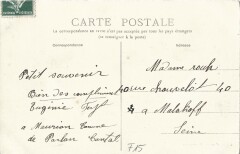 CARTE POSTALE
La correspondance au recto n'est pas acceptée par tous les pays étrangers
(se renseigner à la poste)
Correspondance
Adresse
Petit souvenir
Bien des compliments
Eugénie
a Meurian
de Parlan Cantal
Madame
40 rue 40
a Malakoff
Seine
F15